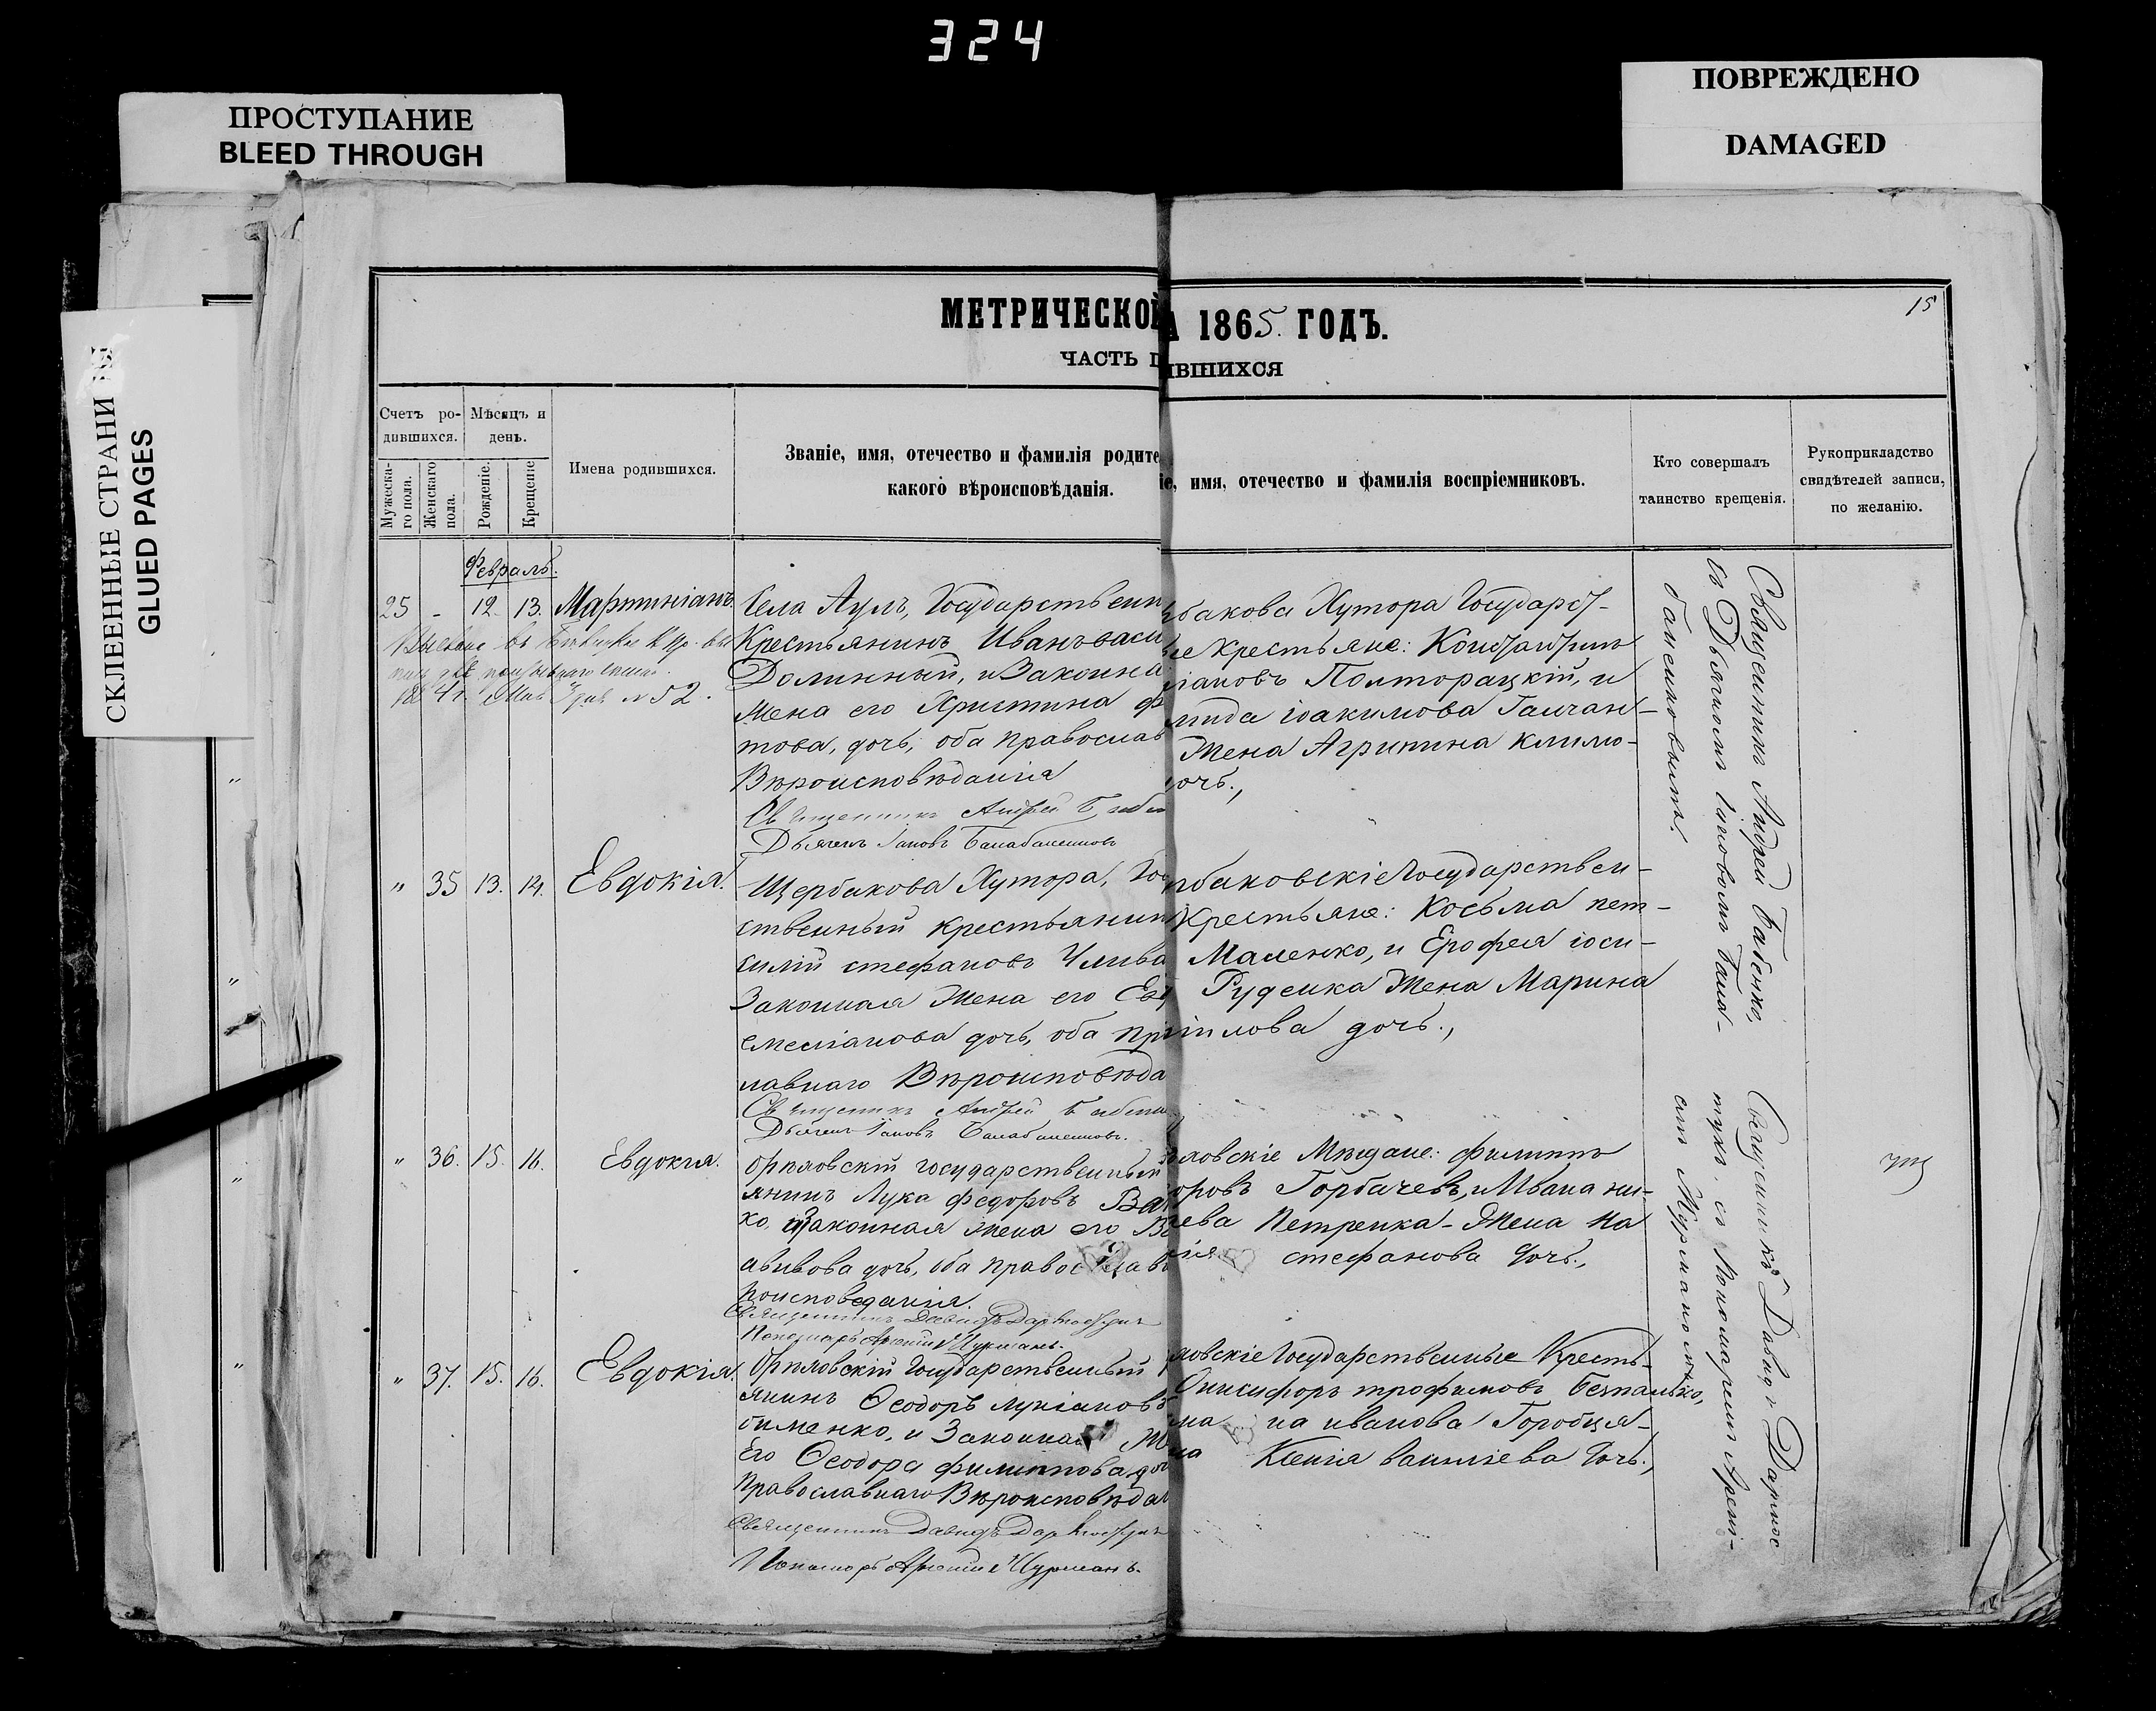 324
ПРОСТУПАНИЕ
BLEED THROUGH
ПОВРЕЖДЕНО
DAMAGED
СКЛЕЕННЫЕ СТРАНИ
GLUED PAGES
МЕТРИЧЕСКОЙ
ЧАСТЬ
А 1865 ГОДЪ.
ИВШИХСЯ
15
Счетъ ро-
дившихся.
Мѣсяцъ и
день.
Мужеска-
го пола.
Женскаго
пола.
Рожденіе.
Крещеніе
Имена родившихся.
Званіе, имя, отечество и фамилія родите
какого вѣроисповѣданія.
іе, имя, отечество и фамилія воспріемниковъ.
Кто совершалъ
таинство крещенія.
Рукоприкладство
свидѣтелей записи,
по желанію.
Февраль.
25 - 12. 13. Мартиніанъ.
№ 52.
Села Аулъ, Государственн
Крестьянинъ Иванъ Васи
Долинный, и Законна
Жена его Христина Ф
това, дочь, оба православ
Вѣроисповѣданія
Священникъ Андрей Бабен
Дьячекъ Іаковъ Балабаненковъ
рбакова Хутора Государст-
ые Крестьяне: Константинъ
ліановъ Полторацкій, и
мида Іоакимова Ганчан-
Жена Агрипина Климо-
дочь.,
Священникъ Андрей Бабенко,
съ Дьячкомъ Іаковомъ Бала-
баненковымъ.
" 35 13. 14. Евдокія.
Щербакова Хутора, Гос
ственный крестьянинъ
силій Стефановъ Чмива
Законная Жена его Евд
емеліанова дочь, оба пра
лавнаго Вѣроисповѣда
Священникъ Андрей Бабен
Дьячекъ Іаковъ Балабаненковъ.
рбаковскіе Государствен-
Крестьяне: Косьма пет-
Маленко, и Ерофея іоси-
Руденка Жена Марина
іилова дочь.,
" 36. 15. 16. Евдокія.
Орѣловскій государственный
янинъ Лука Федоровъ Ва
ко, и Законная жена его В
авивова дочь, оба православ
роисповеданія.
Священникъ Давидъ Даркос
Пономарь Арсеній Мурманъ.
ловскіе Мѣщане: Филиппъ
оровъ Горбачевъ, и Ивана ни-
аева Петренка - Жена На
лія стефанова дочь.,
Священникъ Давидъ Даркос
съ Пономаремъ Арсені-
емъ Мурманомъ
" 37. 15. 16. Евдокія.
Орѣловскій Государственный
янинъ Ѳеодоръ Лукіановъ
именко, и Законная Ж
Его Ѳеодора Филиппова доч
Православнаго Вѣроисповѣдан
Священникъ Давидъ Даркос
Пономарь Арсеній Мурманъ.
ловскіе Государственные Кресть-
Оникифоръ трофимовъ Безпалько,
на иванова Горобця-
на Ксенія василіева дочь.,